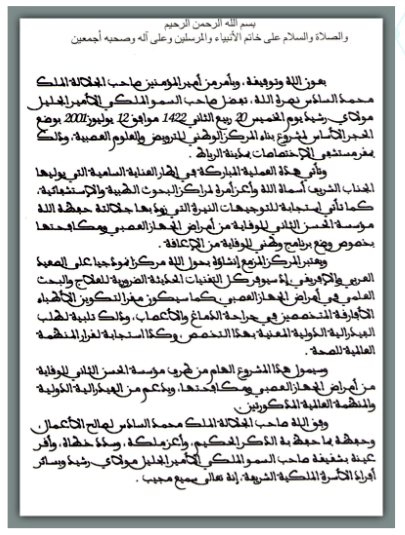 بسم الله الرحمن الرحيم
والصلاة والسلام على خاتم الأنبياء والمرسلين وعلى آله وصحبه أجمعين
بعون الله وتوفيقه، وبأمر من أمير المؤمنين صاحب الجلالة الملك
محمد السادس نصره الله، تفضل صاحب السمو الملكي الأمير الجليل
مولاي رشيد يوم الخميس 20 ربيع الثاني 1422 موافق 12 يوليوز 2001 بوضع
الحجر الأساس لمشروع بناء المركز الوطني للترويض والعلوم العصبية، وذلك
بمقر مستشفى الاختصاصات بمدينة الرباط.
وتأتي هذه العملية المباركة في إطار العناية السامية التي يوليها
الجناب الشريف أسماه الله وأعز أمره لمراكز البحوث الطبية والاستشفائية،
كما تأتي استجابة للتوجيهات النيرة التي زود بها جلالته حفظه الله
مؤسسة الحسن الثاني للوقاية من أمراض الجهاز العصبي ومكافحتها
بخصوص وضع برنامج وطني للوقاية من الإعاقة.
ويعتبر المركز المزمع إنشاؤه بحول الله مركزا نموذجيا على الصعيد
العربي والإفريقي إذ سيوفر كل التقنيات الحديثة الضرورية للعلاج والبحث
العلمي في أمراض الجهاز العصبي كما سيكون مقرا لتكوين الأطباء
الأفارقة المتخصصين في جراحة الدماغ والأعصاب، وذلك تلبية لطلب
الفيدرالية الدولية المعنية بهذا التخصص وكذا استجابة لقرار المنظمة
العالمية للصحة.
وسيمول هذا المشروع الهام من طرف مؤسسة الحسن الثاني للوقاية
من أمراض الجهاز العصبي ومكافحتها، وبدعم من الفيدرالية الدولية
والمنظمة العالمية المذكورتين.
وفق الله صاحب الجلالة الملك محمد السادس لصالح الأعمال
وحفظه بما حفظ به الذكر الحكيم، وأعز ملكه، وسدد خطاه، وأقر
عينه بشقيقه صاحب السمو الملكي الأمير الجليل مولاي رشيد وبسائر
أفراد الأسرة الملكية الشريفة، إنه تعالى سميع مجيب.